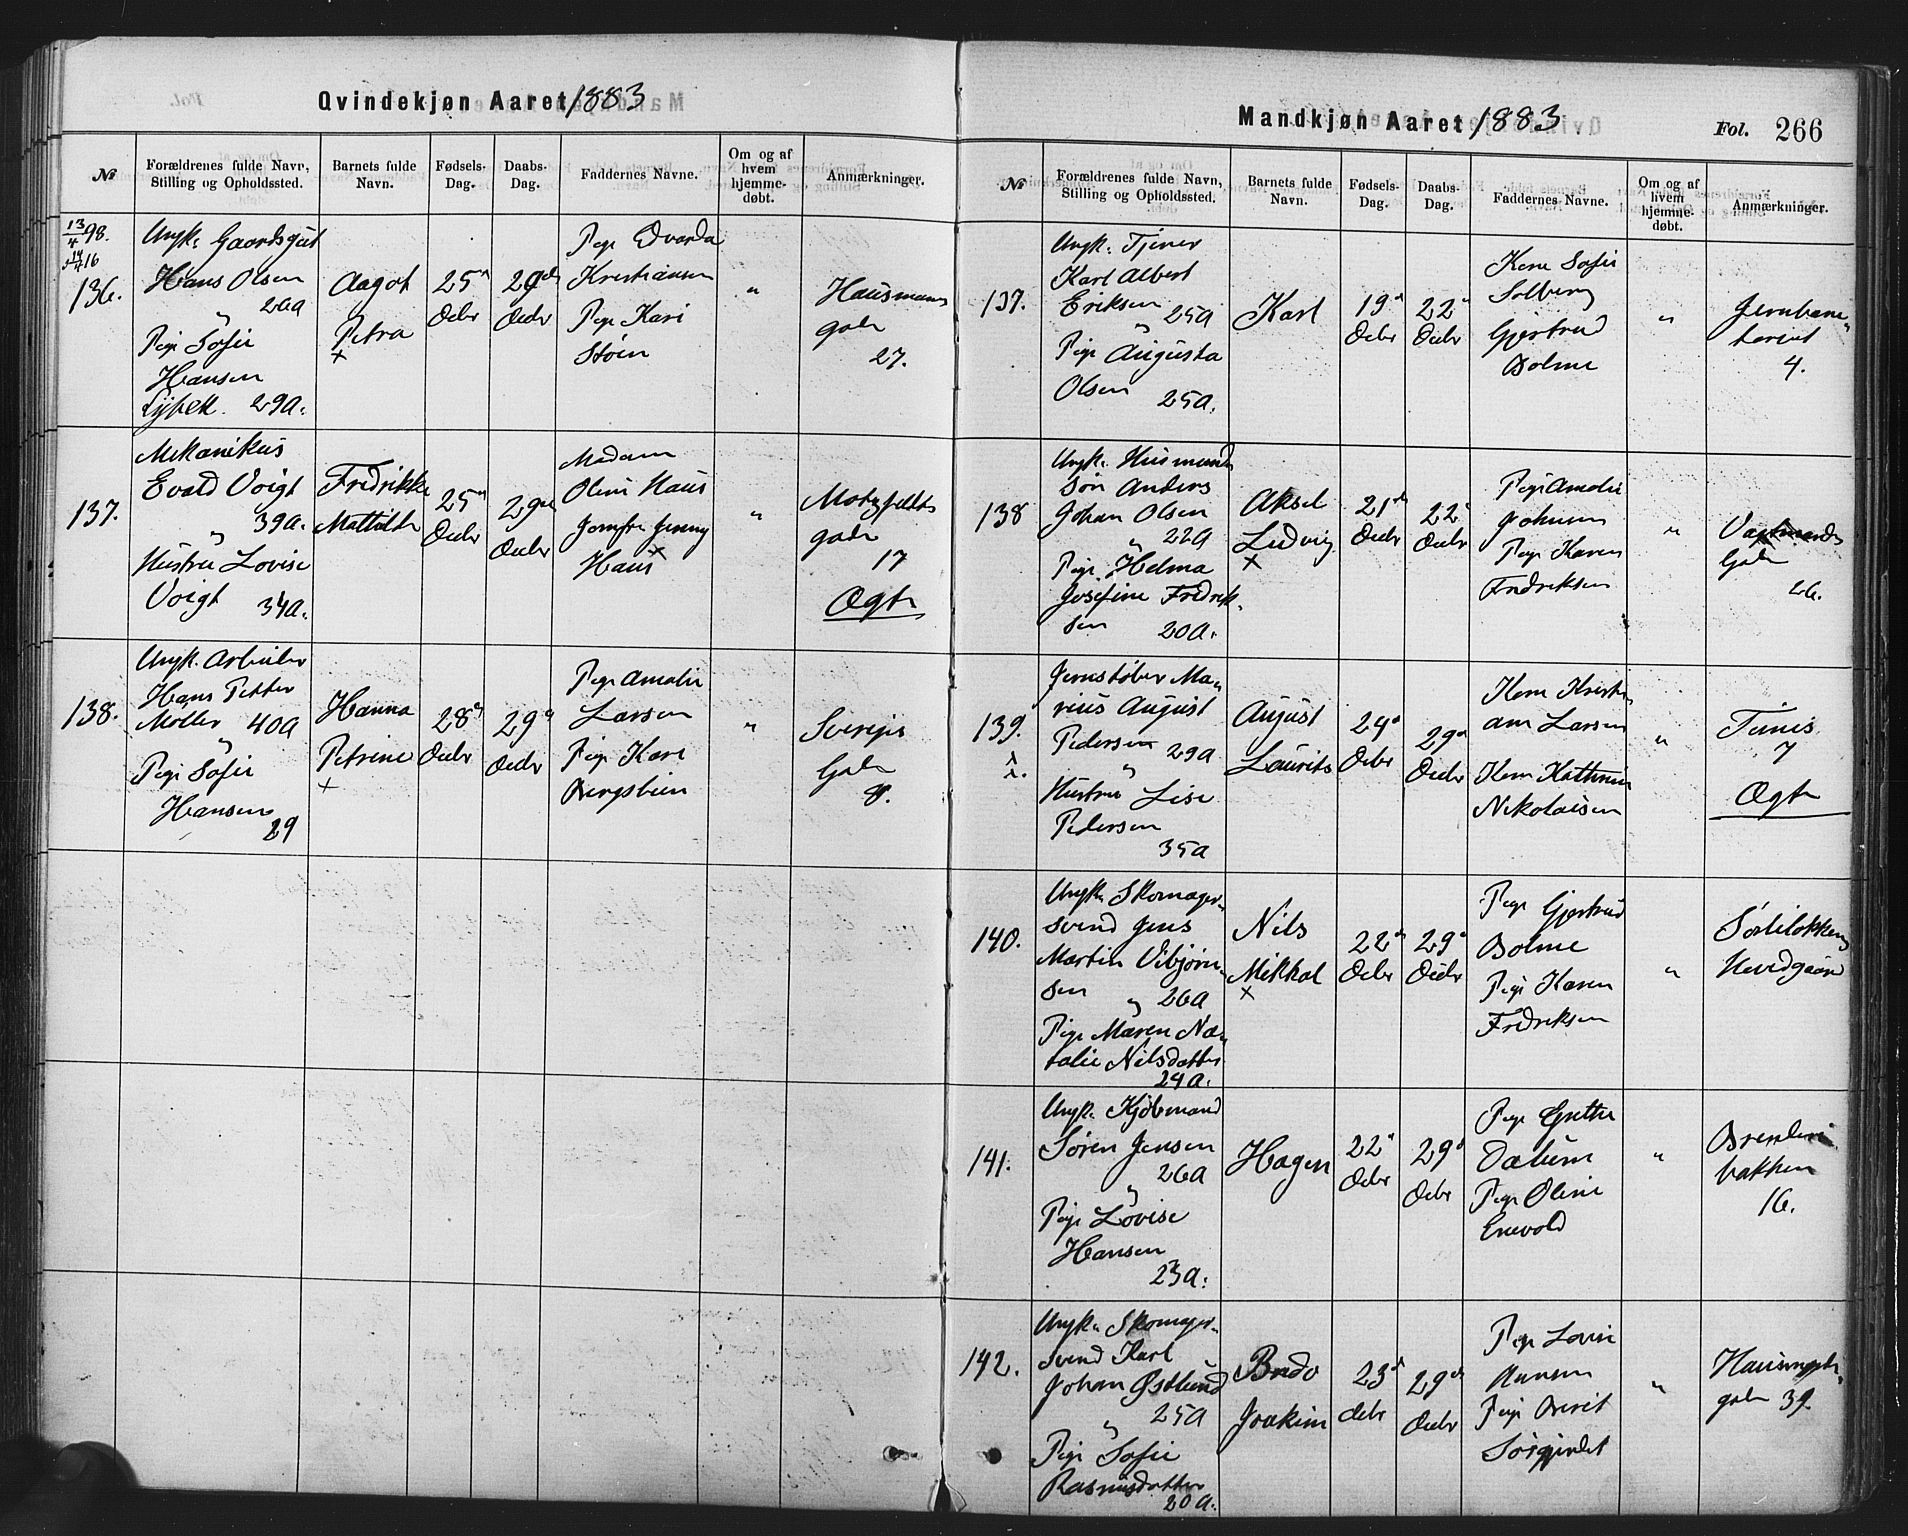 Qvindekjøn Aaret 1883
№
Forældrenes fulde Navn, Stilling og Opholdssted.
Barnets fulde Navn.
Fødsels-Dag.
Daabs-Dag.
Faddernes Navne.
Om og af hvem hjemme-døbt.
Anmærkninger.
13/4 98.
14/4 16
136.
Ungk. Gaardsgut
Hans Olsen
26a
Pige Sofie
Hansen
Lybek. 29a.
Aagot
Petra
×
25
Decbr
29de
Decbr
Pige Edvarda
Kristiansen
Pige Kari
Støen
"
Hausmans
gade
27.
137.
Mekanikus
Evald Voigt
39a.
Hustru Lovise
Voigt 34a.
Fredrikke
Mathilde
25
Decbr
29de
Decbr
Madam
Oline Haus
Jomfru Jenny
Haus
"
Motzfeldts
gade
17
Ægte
138.
Ungk. Arbeider
Hans Petter
Møller 40a
Pige Sofie
Hansen
29
Hanna
Petrine
×
28
Decbr
29
Decbr
Pige Amalie
Larsen
Pige Kari
Bergstien
"
Sverres
Gade
8.
Mandkjøn Aaret 1883
Fol. 266
№
Forældrenes fulde Navn, Stilling og Opholdssted.
Barnets fulde Navn.
Fødsels-Dag.
Daabs-Dag.
Faddernes Navne.
Om og af hvem hjemme-døbt.
Anmærkninger.
137.
Ungk. Tjener
Karl Albert
Eriksen 25a
Pige Augusta
Olsen 25a.
Karl
19
Decbr
22
Decbr
Kone Sofie
Solberg
Gjertrud
Bolme
"
Jernbane
torvet
4.
138
Ungk. Husmands
søn Anders
Johan Olsen
22a
Pige Helma
Josefine Fredrik
sen 20a.
Aksel
Ludvig
×
21de
Decbr
22
Decbr
Pige Amalie
Johnsen
Pige Karen
Fredriksen
"
Gade
26.
139.
Jernstøber Ma
rius August
Pedersen 29a
Hustru Lise
Pedersen
35a
August
Laurits
24
Decbr
29
Decbr
Kone Kristi
ane Larsen
Kone Kathrine
Nikolaisen
"
7
Ægte
140.
Ungk. Skomager
svend Jens
Martin Vibjørn
sen 26a
Pige Maren Na
talie Nilsdatter
24a.
Nils
Mikkal
×
22
Decbr
29
Decbr
Pige Gjertrud
Bolme
Pige Karen
Fredriksen
"
Sorliløkken
Hovedgaard
141.
Ungk. Kjøbmand
Søren Jensen
26a
Pige Lovise
Hansen
23a.
Hagen
22
Decbr
29
Decbr
Pige Grethe
Dalum
Pige Oline
Enevold
"
bakken
16.
142.
Ungk. Skomager
svend Karl
Johan Østlund
25a
Pige Sofie
Rasmusdatter
20a.
Bredo
Joakim
23
decbr
29de
Decbr
Pige Lovise
Hansen
Pige Berit
"
gade 39.